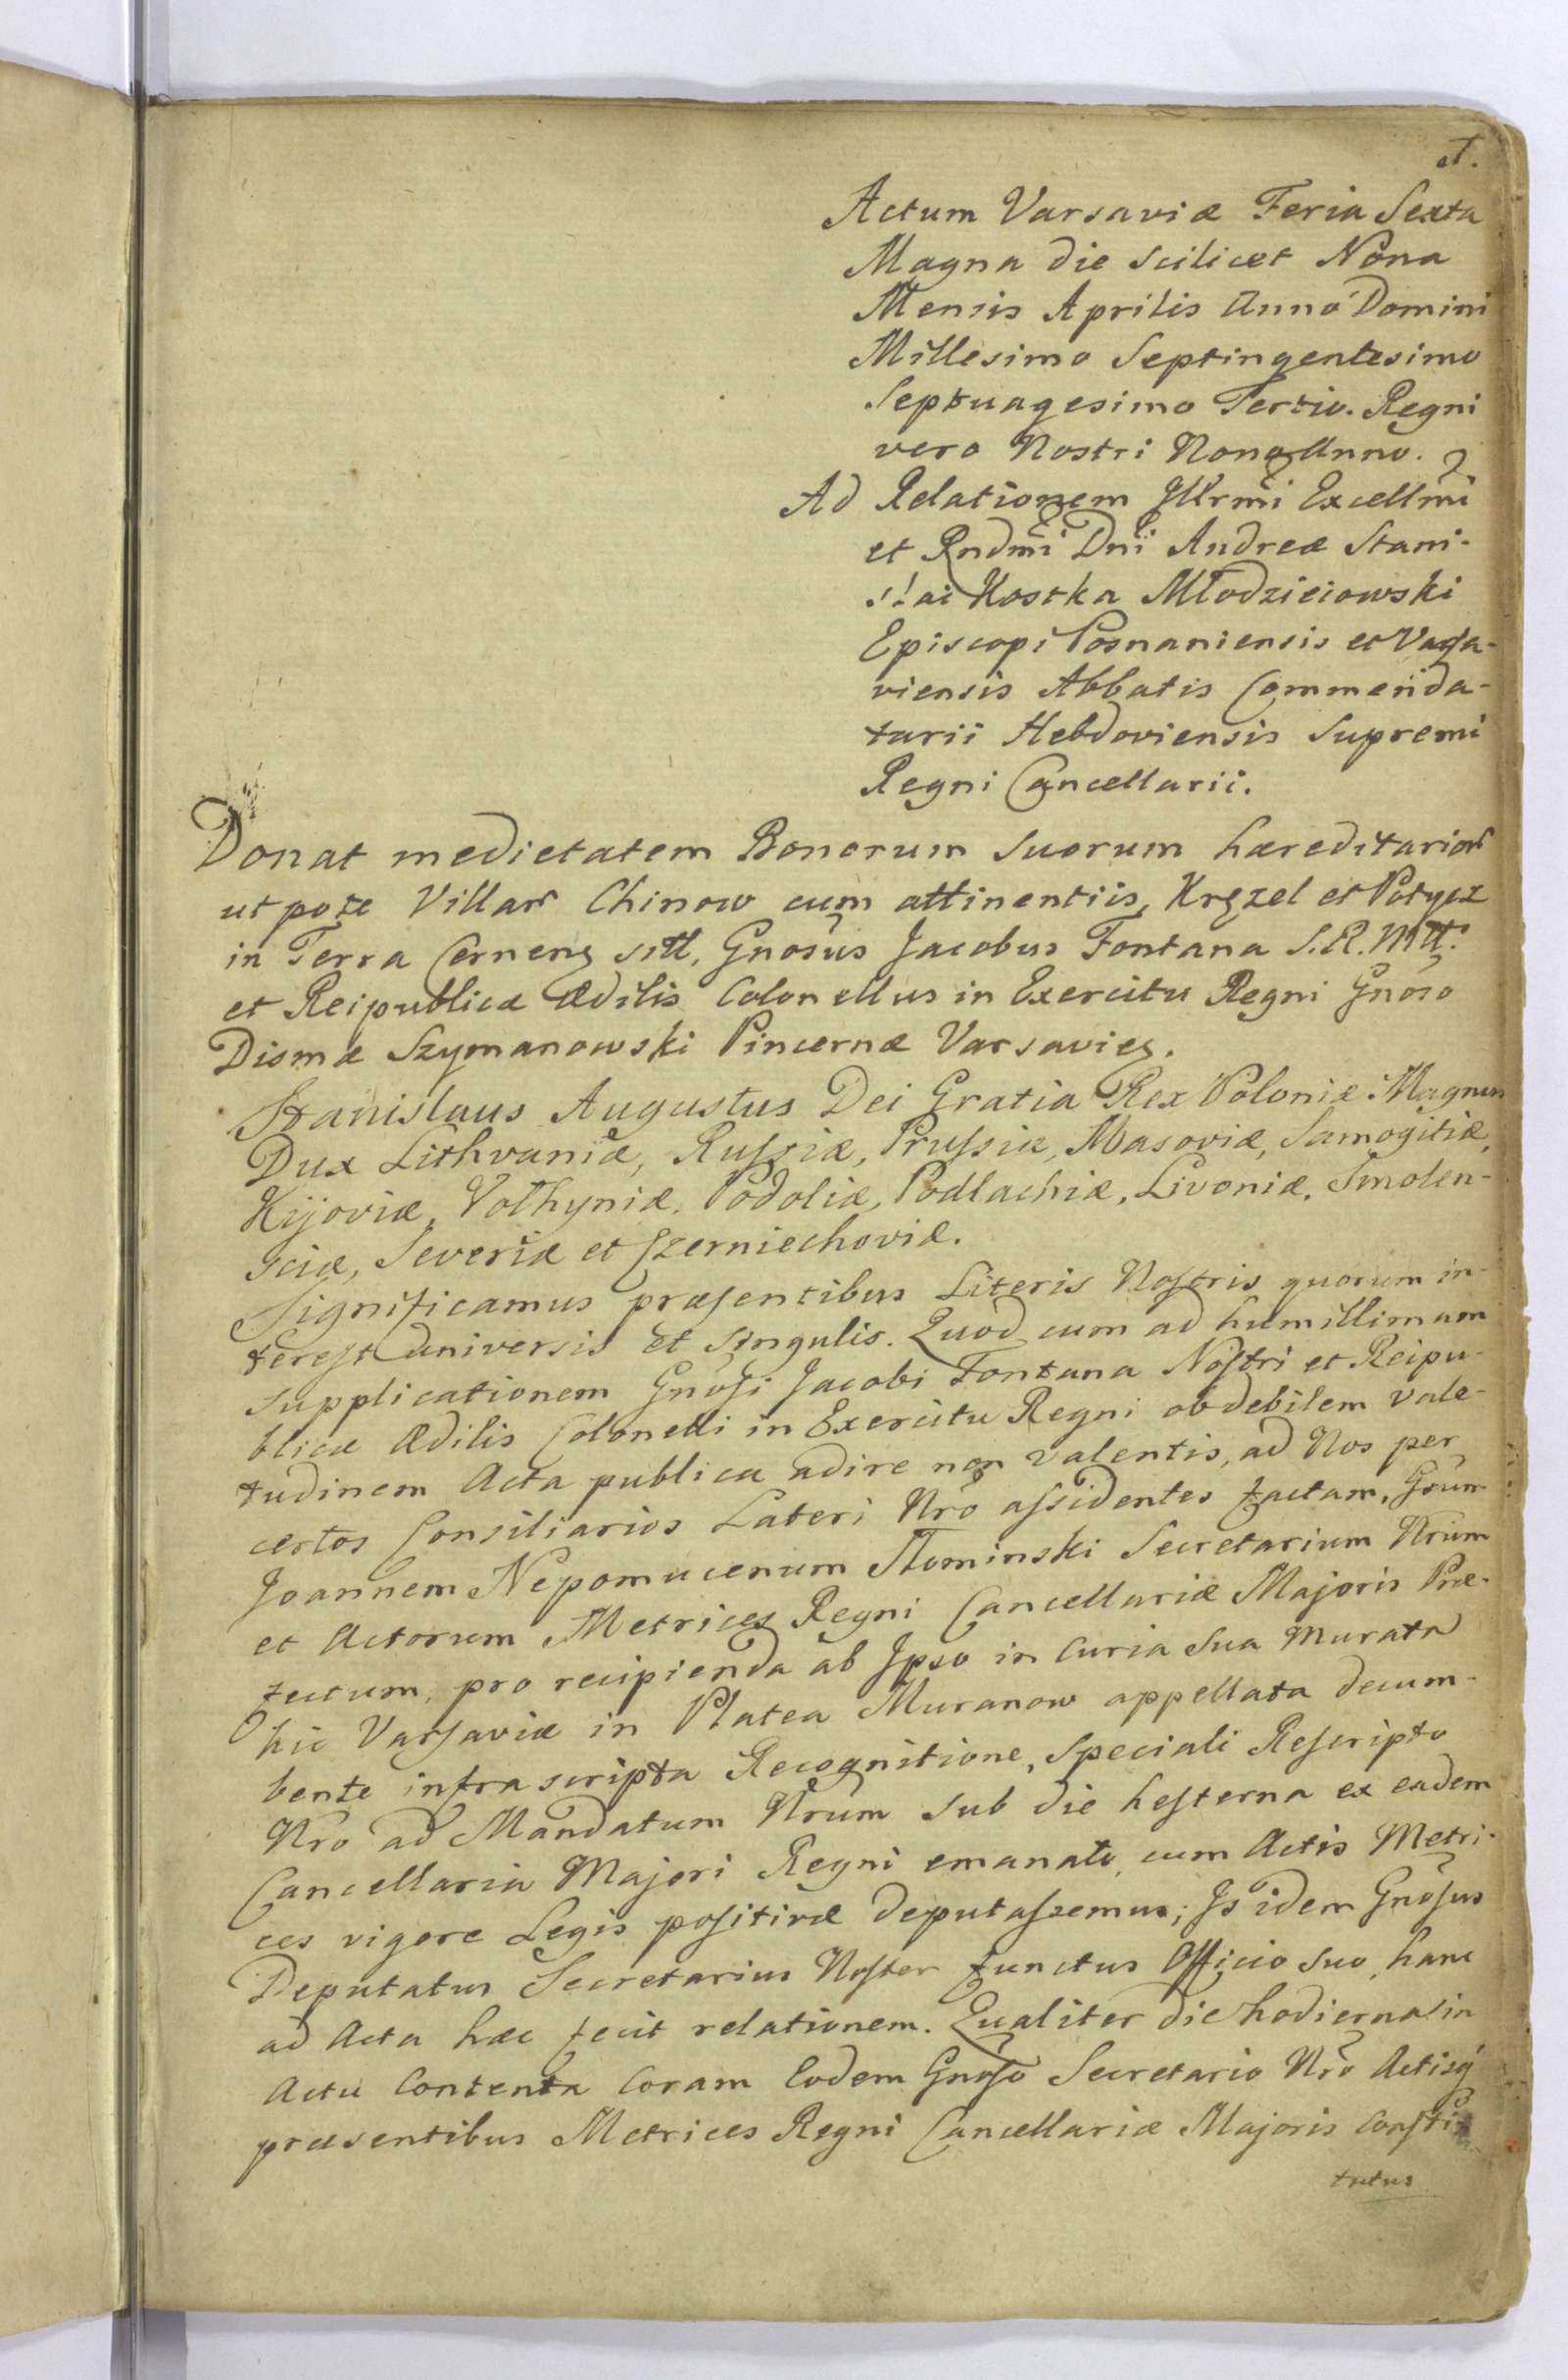 1.
Actum Varsaviæ Feria Sexta
Magna die scilicet Nona
Mensis Aprilis Anno Domini
Millesimo Septingentesimo
Septuagesimo Tertio. Regni
vero Nostri Nono Anno.
Ad Relationem Illrmi Excellmi
et Rndmi Dni Andreæ Stani-
slai Kostka Młodzieiowski
Episcopi Posnaniensis et Varsa-
viensis Abbatis Commenda-
tarii Hebdoviensis Supremi
Regni Cancellarii.
Donat medietatem Bonorum suorum hæreditarior
utpote Villar Chinow cum attinentiis, Kręzel et Potycz
in Terra Cernens sitt, Gnosus Jacobus Fontana S. R. Mtt:
et Reipublicæ Ædilis Colonellus in Exercitu Regni Gnoso
Dismæ Szymanowski Pincernæ Varsavies.
Stanislaus Augustus Dei Gratia Rex Poloniæ Magnus
Dux Lithvaniæ, Russiæ, Prussiæ, Masoviæ, Samogitiæ,
Kijoviæ, Volhyniæ, Podoliæ, Podlachiæ, Livoniæ, Smolen-
sciæ, Severiæ et Czerniechoviæ.
Significamus præsentibus Literis Nostris quorum in-
terest universis et singulis. Quod cum ad humillimam
supplicationem Gnosi Jacobi Fontana Nostri et Reipu-
blicæ Ædilis Colonelli in Exercitu Regni ob debilem vale-
tudinem Acta publica adire non valentis, ad Nos per
certos Consiliarios Lateri Nro assidentes factam, Gsum
Joannem Nepomucenum Słominski Secretarium Nrum
et Actorum Metrices Regni Cancellariæ Majoris Præ-
fectum, pro recipienda ab Ipso in Curia sua Murata
hic Varsaviæ in Platea Muranow appellata decum-
bente infrascripta Recognitione, speciali Rescripto
Nro ad Mandatum Nrum sub die hesterna ex eadem
Cancellaria Majori Regni emanato, cum Actis Metri-
ces vigore Legis positivæ deputassemus; Is idem Gnosus
Deputatus Secretarius Noster functus Officio suo, hanc
ad Acta hæc fecit relationem. Qualiter die hodierna in
Actu Contenta Coram Eodem Gnoso Secretario Nro Actisq́
præsentibus Metrices Regni Cancellariæ Majoris Consti-
tutus